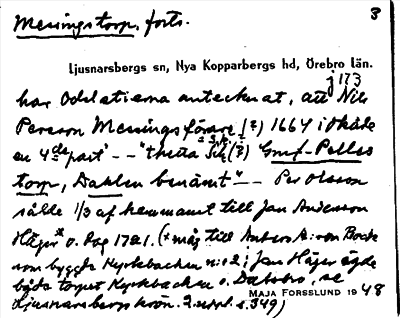 Messingstorp, forts. 3
Ljusnarsbergs sn, Nya Kopparbergs hd, Örebro län.
j 173
har Odelstierna antecknat, att Nils
Persson Messings förare (?) 1664 i Okåde
en 4de part" -- "thetta (?) Gruf-Pellss
torp, Dahlen benämt" -- Per Olsson
sålde 1/3 af hemmanet till Jan Andersson
Häger o. Pag 1721. (* måg till Anders von Bock
som byggde Kyrkbacken n:o 2; Jan Häger ägde
båda torpet Kyrkbacken o. se
Ljusnarsbergs krön. 2. uppl. s. 349)
MAJA FORSSLUND 1948